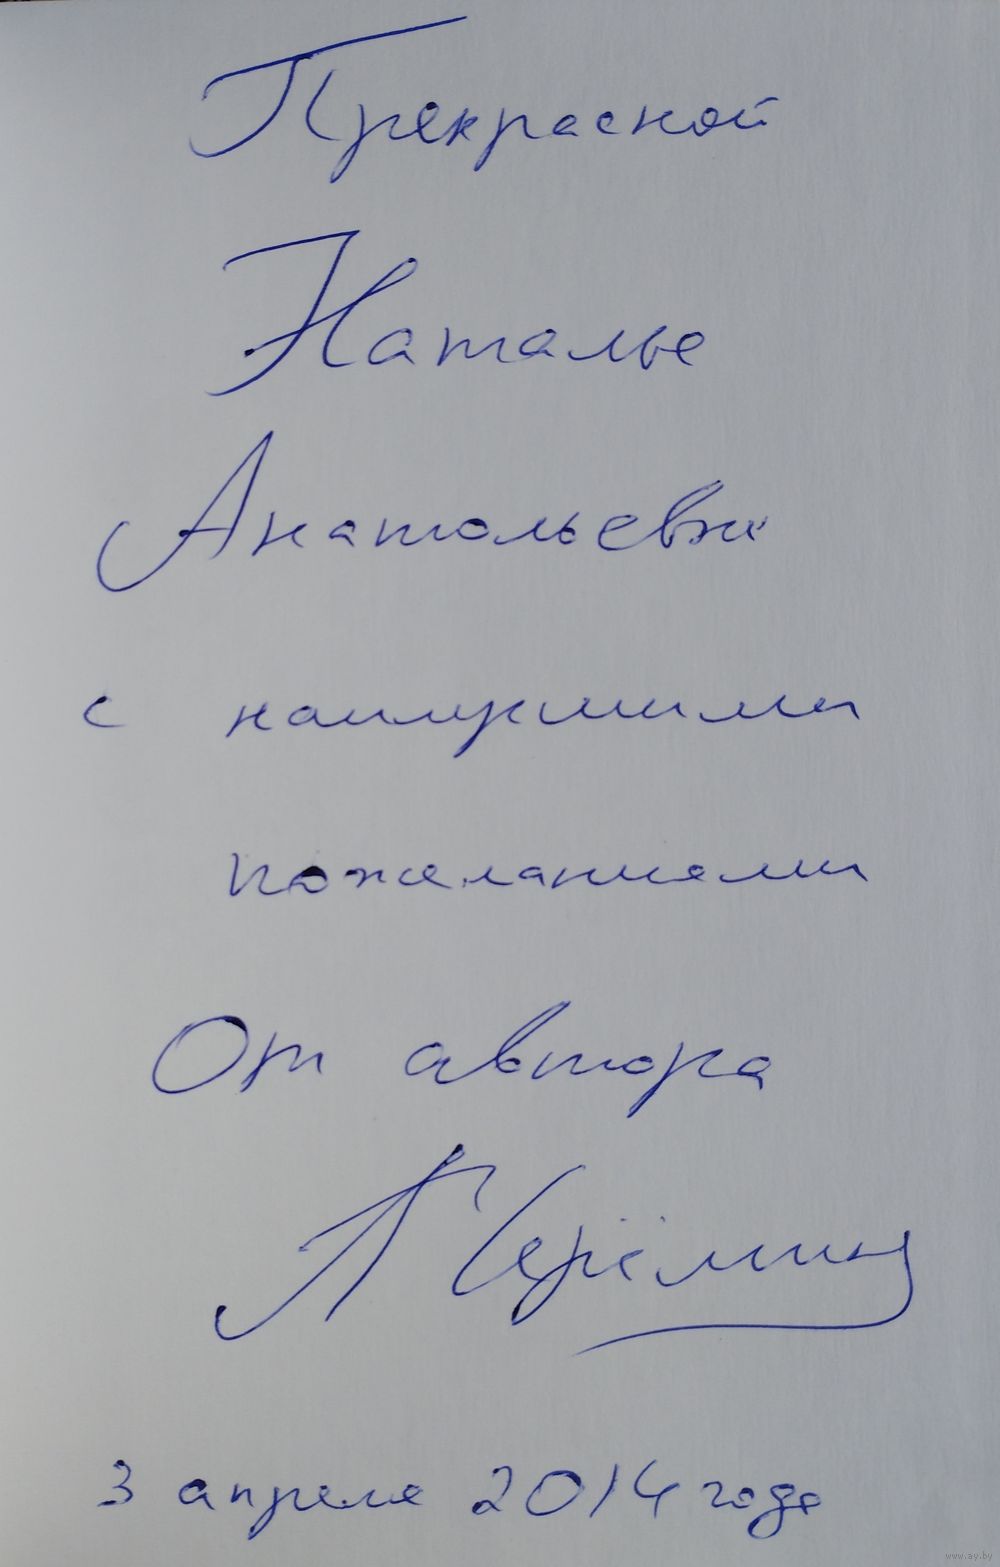 Прекрасной
Наталье
Анатольевне
с наилучшими
пожеланиями
От автора
3 апреля 2014 года
www.ay.by